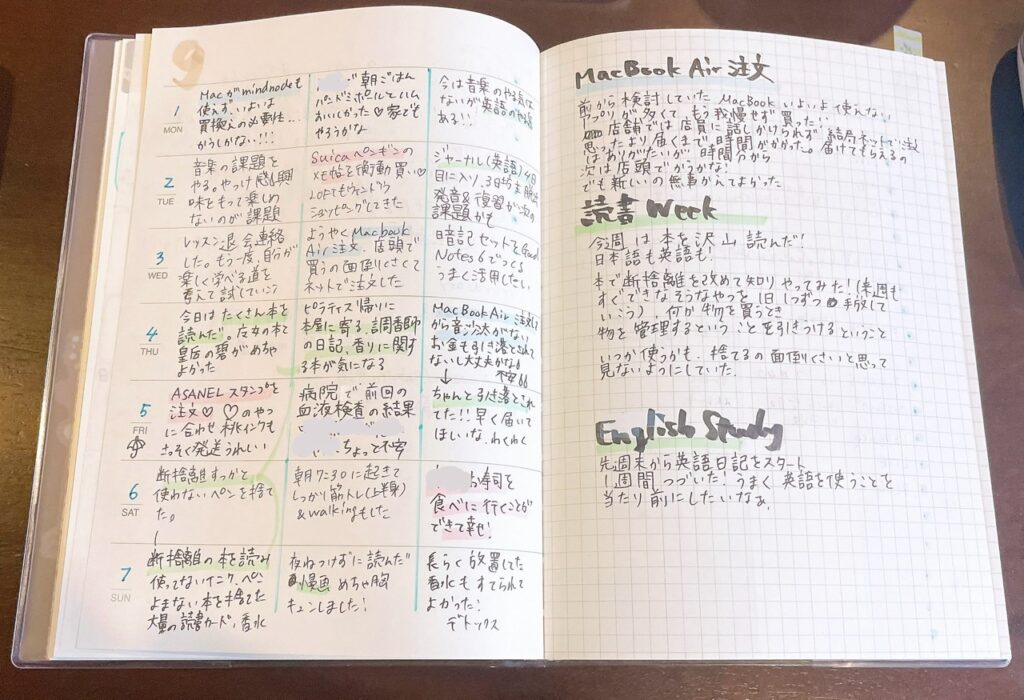 9
1
MON
Macがmindnodeも
使えず、いよいよ
買換えの必要性…
かうしかない!!!
朝ごはん
パンとミネボールとハム
おいしかった♡家でも
やろうかな
今は音楽のやる気は
ないが英語のやる気
ある!!
2
TUE
音楽の課題を
やる。やっつけ感。興
味をもって楽しめ
ないのが課題
Suicaペンギンの
メモ帖を衝動買い♡
LOFTもウィンドウ
ショッピングしてきた
ジャーナル(英語)4日
目に入り、3日坊主脱出
発音&復習が次の
課題かも
3
WED
レッスン退会連絡
した。もう一度、自分が
楽しく学べる道を
考えて試していこう
ようやくMacbook
Air注文。店頭で
買うの面倒くさくて
ネットで注文した
暗記セットをGood
Notes6でつくる
うまく活用したい
4
THU
今日はたくさん本を
読んだ。友女の本で
皇后の碧がめちゃ
よかった
ピラティス帰りに
本屋に寄る。調香師
の日記、香りに関す
る本が気になる
MacBook Air注文して
から音沙汰がない
お金も引き落とされて
ないし大丈夫かな。
不安
↓
5
FRI
ASANELスタンプを
注文♡ ♡のやつ
に合わせ桃インクも
さっそく発送うれしい
病院で前回の
血液検査の結果
ちょっと不安
ちゃんと引き落とされ
てた!!早く届いて
ほしいな、わくわく
6
SAT
断捨離すっかと
使わないペンを捨て
た。
朝7:30に起きて
しっかり筋トレ(上半身)
&walkingもした
お寿司を
食べに行くことが
できて幸せ!
7
SUN
断捨離の本を読み
使ってないインク、ペン
よまない本を捨てた
大量の読書カード、香水
夜ねつけずに読んだ
漫画めちゃ胸
キュンしました!
長らく放置してた
香水もすてられて
よかった!
デトックス
MacBook Air 注文
前から検討していたMacBookいよいよ使えない
アプリが多くて、もう我慢せず買った!!
店舗では店員に話しかけられず結局ネットで注文
思ったより届くまで時間がかかった。届けてもらえるの
はありがたいが時間分から
次は店頭でかうかな!
でも新しいの無事かえてよかった
読書 Week
今週は本を沢山読んだ!
日本語も英語も!
本で断捨離を改めて知りやってみた!(来週も
すぐできなそうなやつを1日1しずつ手放して
いこう)、何か物を買うとき
物を管理するということを引きうけるということ
いつか使うかも、捨てるの面倒くさいと思って
見ないようにしていた。
English Study
先週末から英語日記をスタート
1週間つづいた!うまく英語を使うことを
当たり前にしたいなぁ。